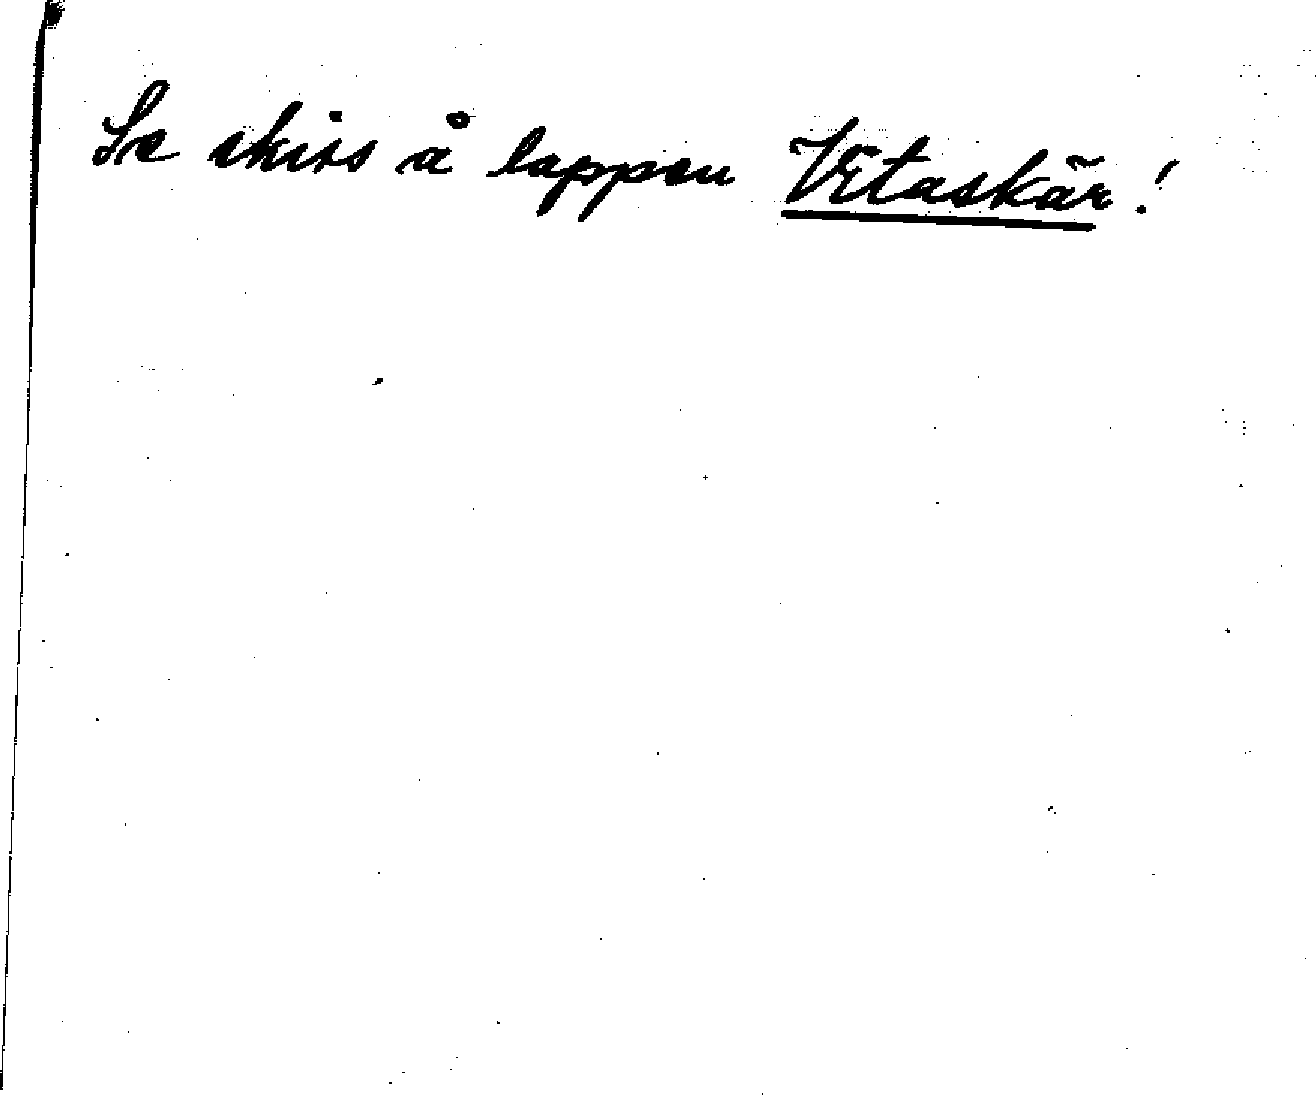 Se skiss å lappen Vetaskär!